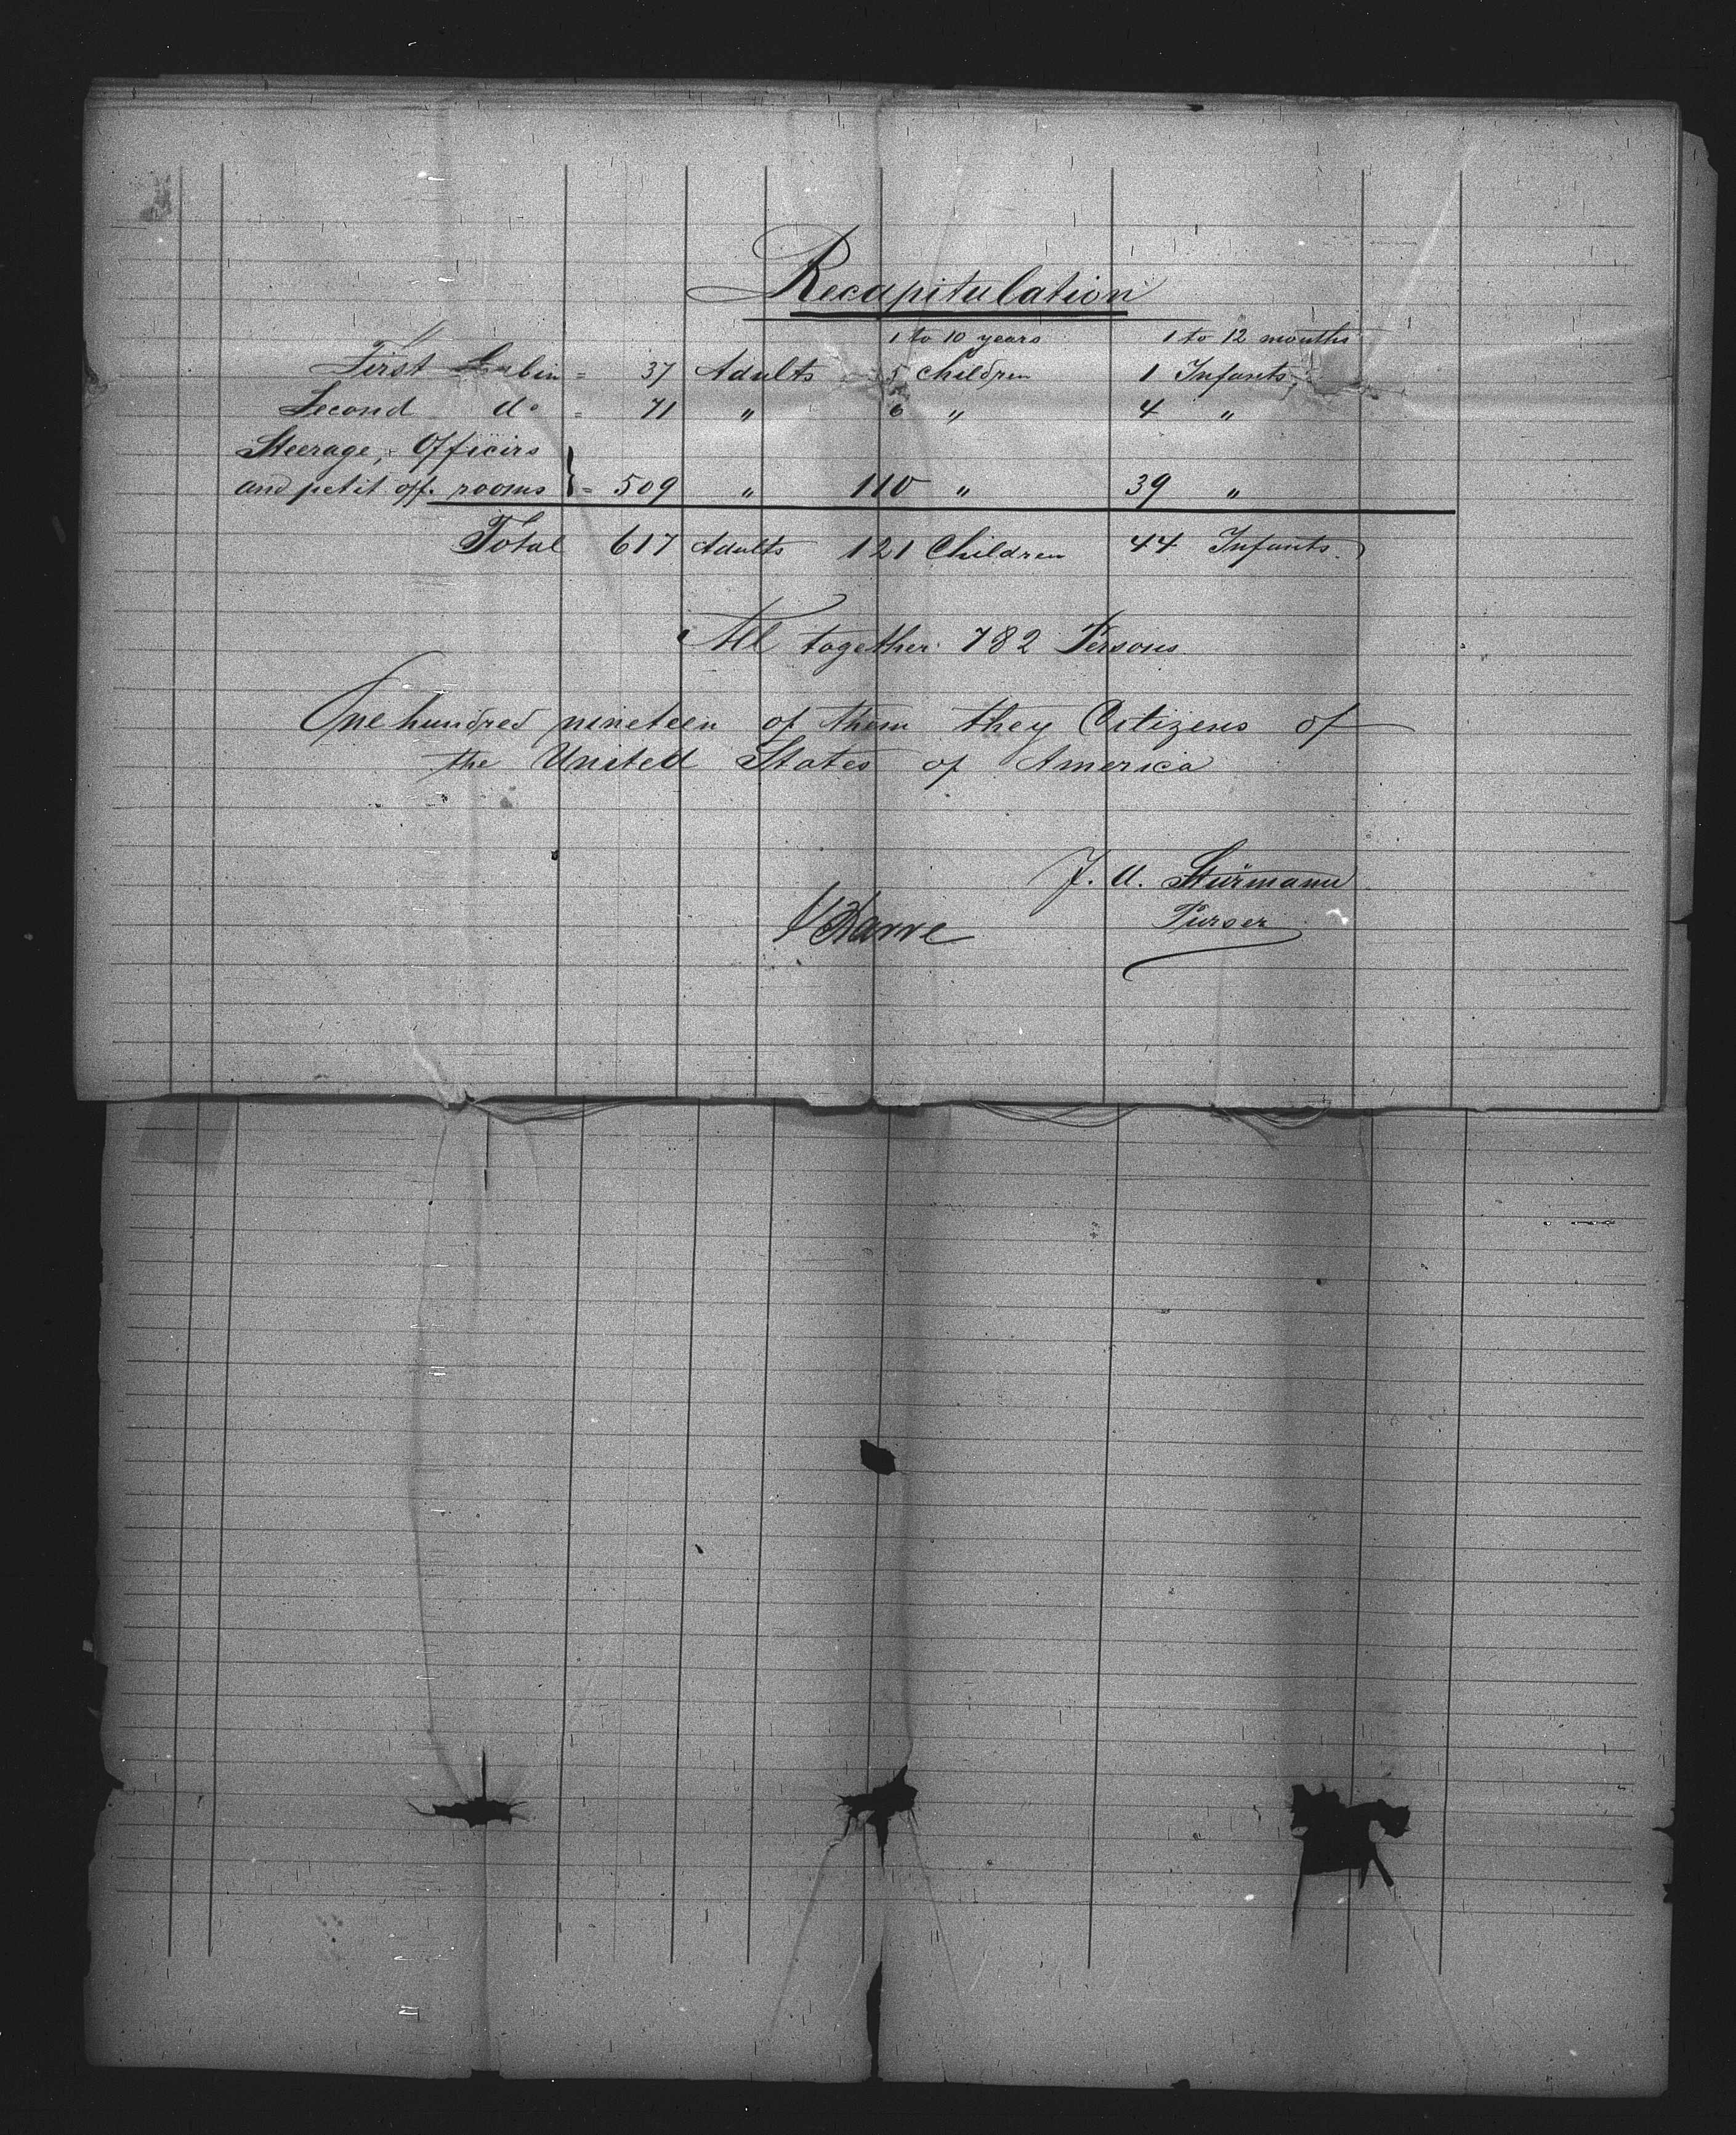 Recapitulation
1 to 10 years 1 to 12 months
First Cabin = 37 Adults 5 Children 1 Infants,
Second do = 71 " 6 " 4 "
Steerage, Officirs
and petit off. rooms } = 509 " 110 " 39 "
Total 617 Adults 121 Children 44 Infants.
All together 782 Persons
One hundred nineteen of them they Citizens of
the United States of America
J. A. Stürmann
Purser